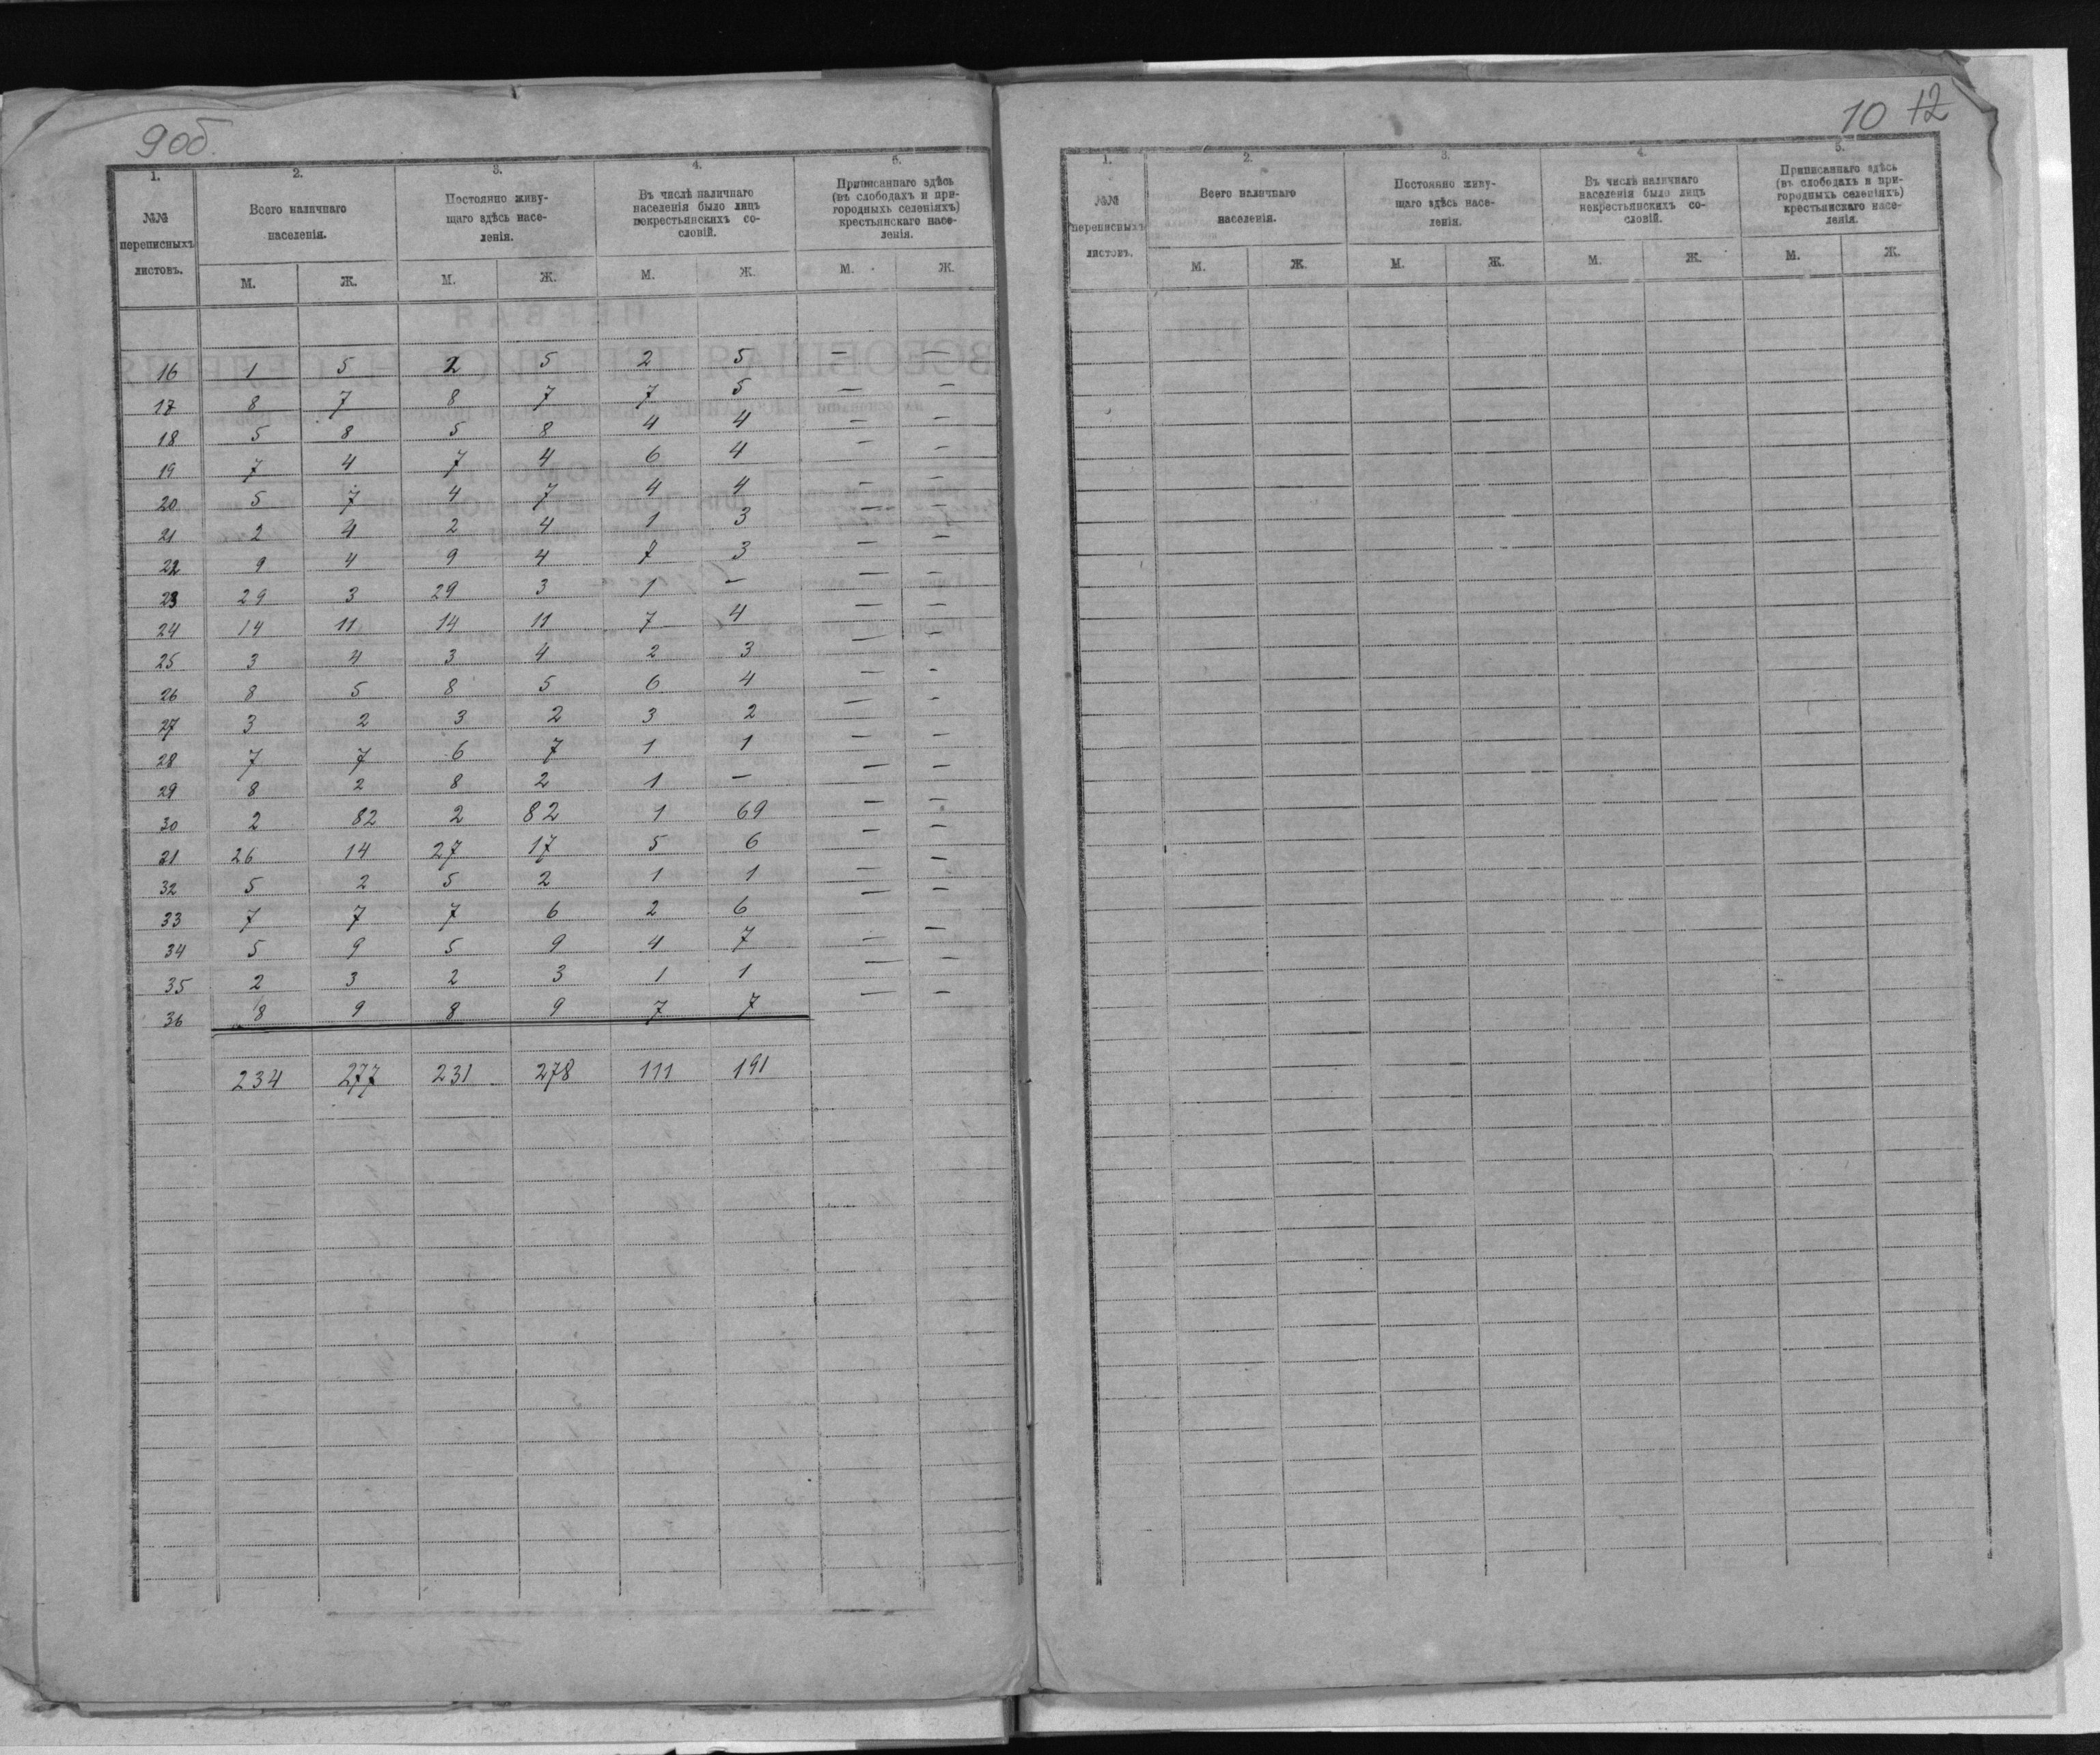 9об.
1. 2. 3. 4. 5.
№№ переписныхъ листовъ.
Всего наличнаго населенія.
Постоянно живущаго здѣсь населенія.
Въ числѣ наличнаго населенія было лицъ некрестьянскихъ сословій.
Приписаннаго здѣсь (въ слободахъ и пригородныхъ селеніяхъ) крестьянскаго населенія.
М. Ж. М. Ж. М. Ж. М. Ж.
16 1 5 2 5 2 5 — —
17 8 7 8 7 7 5 — —
18 5 8 5 8 4 4 — —
19 7 4 7 4 6 4 — —
20 5 7 4 7 4 4 — —
21 2 4 2 4 1 3 — —
22 9 4 9 4 7 3 — —
23 29 3 29 3 1 — — —
24 14 11 14 11 7 4 — —
25 3 4 3 4 2 3 — —
26 8 5 8 5 6 4 — —
27 3 2 3 2 3 2 — —
28 7 7 6 7 1 1 — —
29 8 2 8 2 1 — — —
30 2 82 2 82 1 69 — —
31 26 14 27 17 5 6 — —
32 5 2 5 2 1 1 — —
33 7 7 7 6 2 6 — —
34 5 9 5 9 4 7 — —
35 2 3 2 3 1 1 — —
36 8 9 8 9 7 7 — —
234 277 231 278 111 191
10 12
1. 2. 3. 4. 5.
№№ переписныхъ листовъ.
Всего наличнаго населенія.
Постоянно живущаго здѣсь населенія.
Въ числѣ наличнаго населенія было лицъ некрестьянскихъ сословій.
Приписаннаго здѣсь (въ слободахъ и пригородныхъ селеніяхъ) крестьянскаго населенія.
М. Ж. М. Ж. М. Ж. М. Ж.